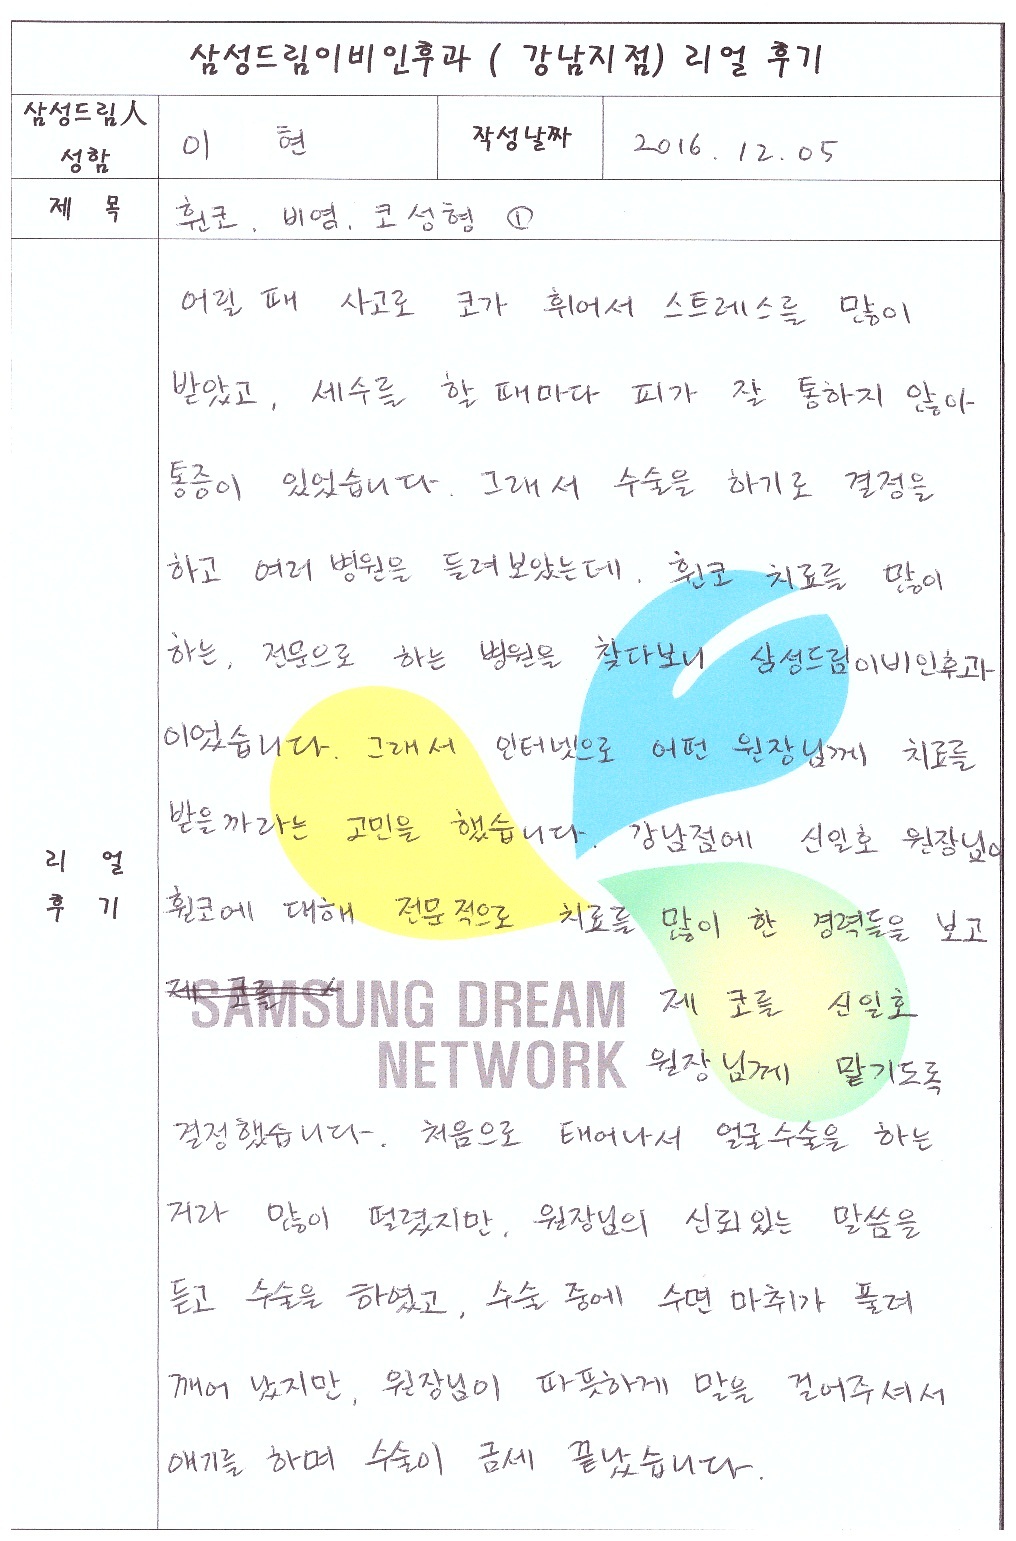 삼성드림이비인후과 ( 강남지점) 리얼 후기
삼성드림人 성함
이 현
작성날짜
2016. 12. 05
제 목
휜코, 비염, 코성형 ①
리 얼 후 기
어릴 때 사고로 코가 휘어서 스트레스를 많이
받았고, 세수를 할 때마다 피가 잘 통하지 않아
통증이 있었습니다. 그래서 수술을 하기로 결정을
하고 여러 병원을 들려보았는데, 휜코 치료를 많이
하는, 전문으로 하는 병원을 찾다보니 삼성드림이비인후과
이었습니다. 그래서 인터넷으로 어떤 원장님께 치료를
받을까라는 고민을 했습니다. 강남점에 신일호 원장님이
휜코에 대해 전문적으로 치료를 많이 한 경력들을 보고
제 코를
SAMSUNG DREAM
NETWORK
제 코를 신일호
원장님께 맡기도록
결정했습니다. 처음으로 태어나서 얼굴수술을 하는
거라 많이 떨렸지만, 원장님의 신뢰있는 말씀을
듣고 수술을 하였고, 수술 중에 수면 마취가 풀려
깨어 났지만, 원장님이 따뜻하게 말을 걸어주셔서
얘기를 하며 수술이 금세 끝났습니다.